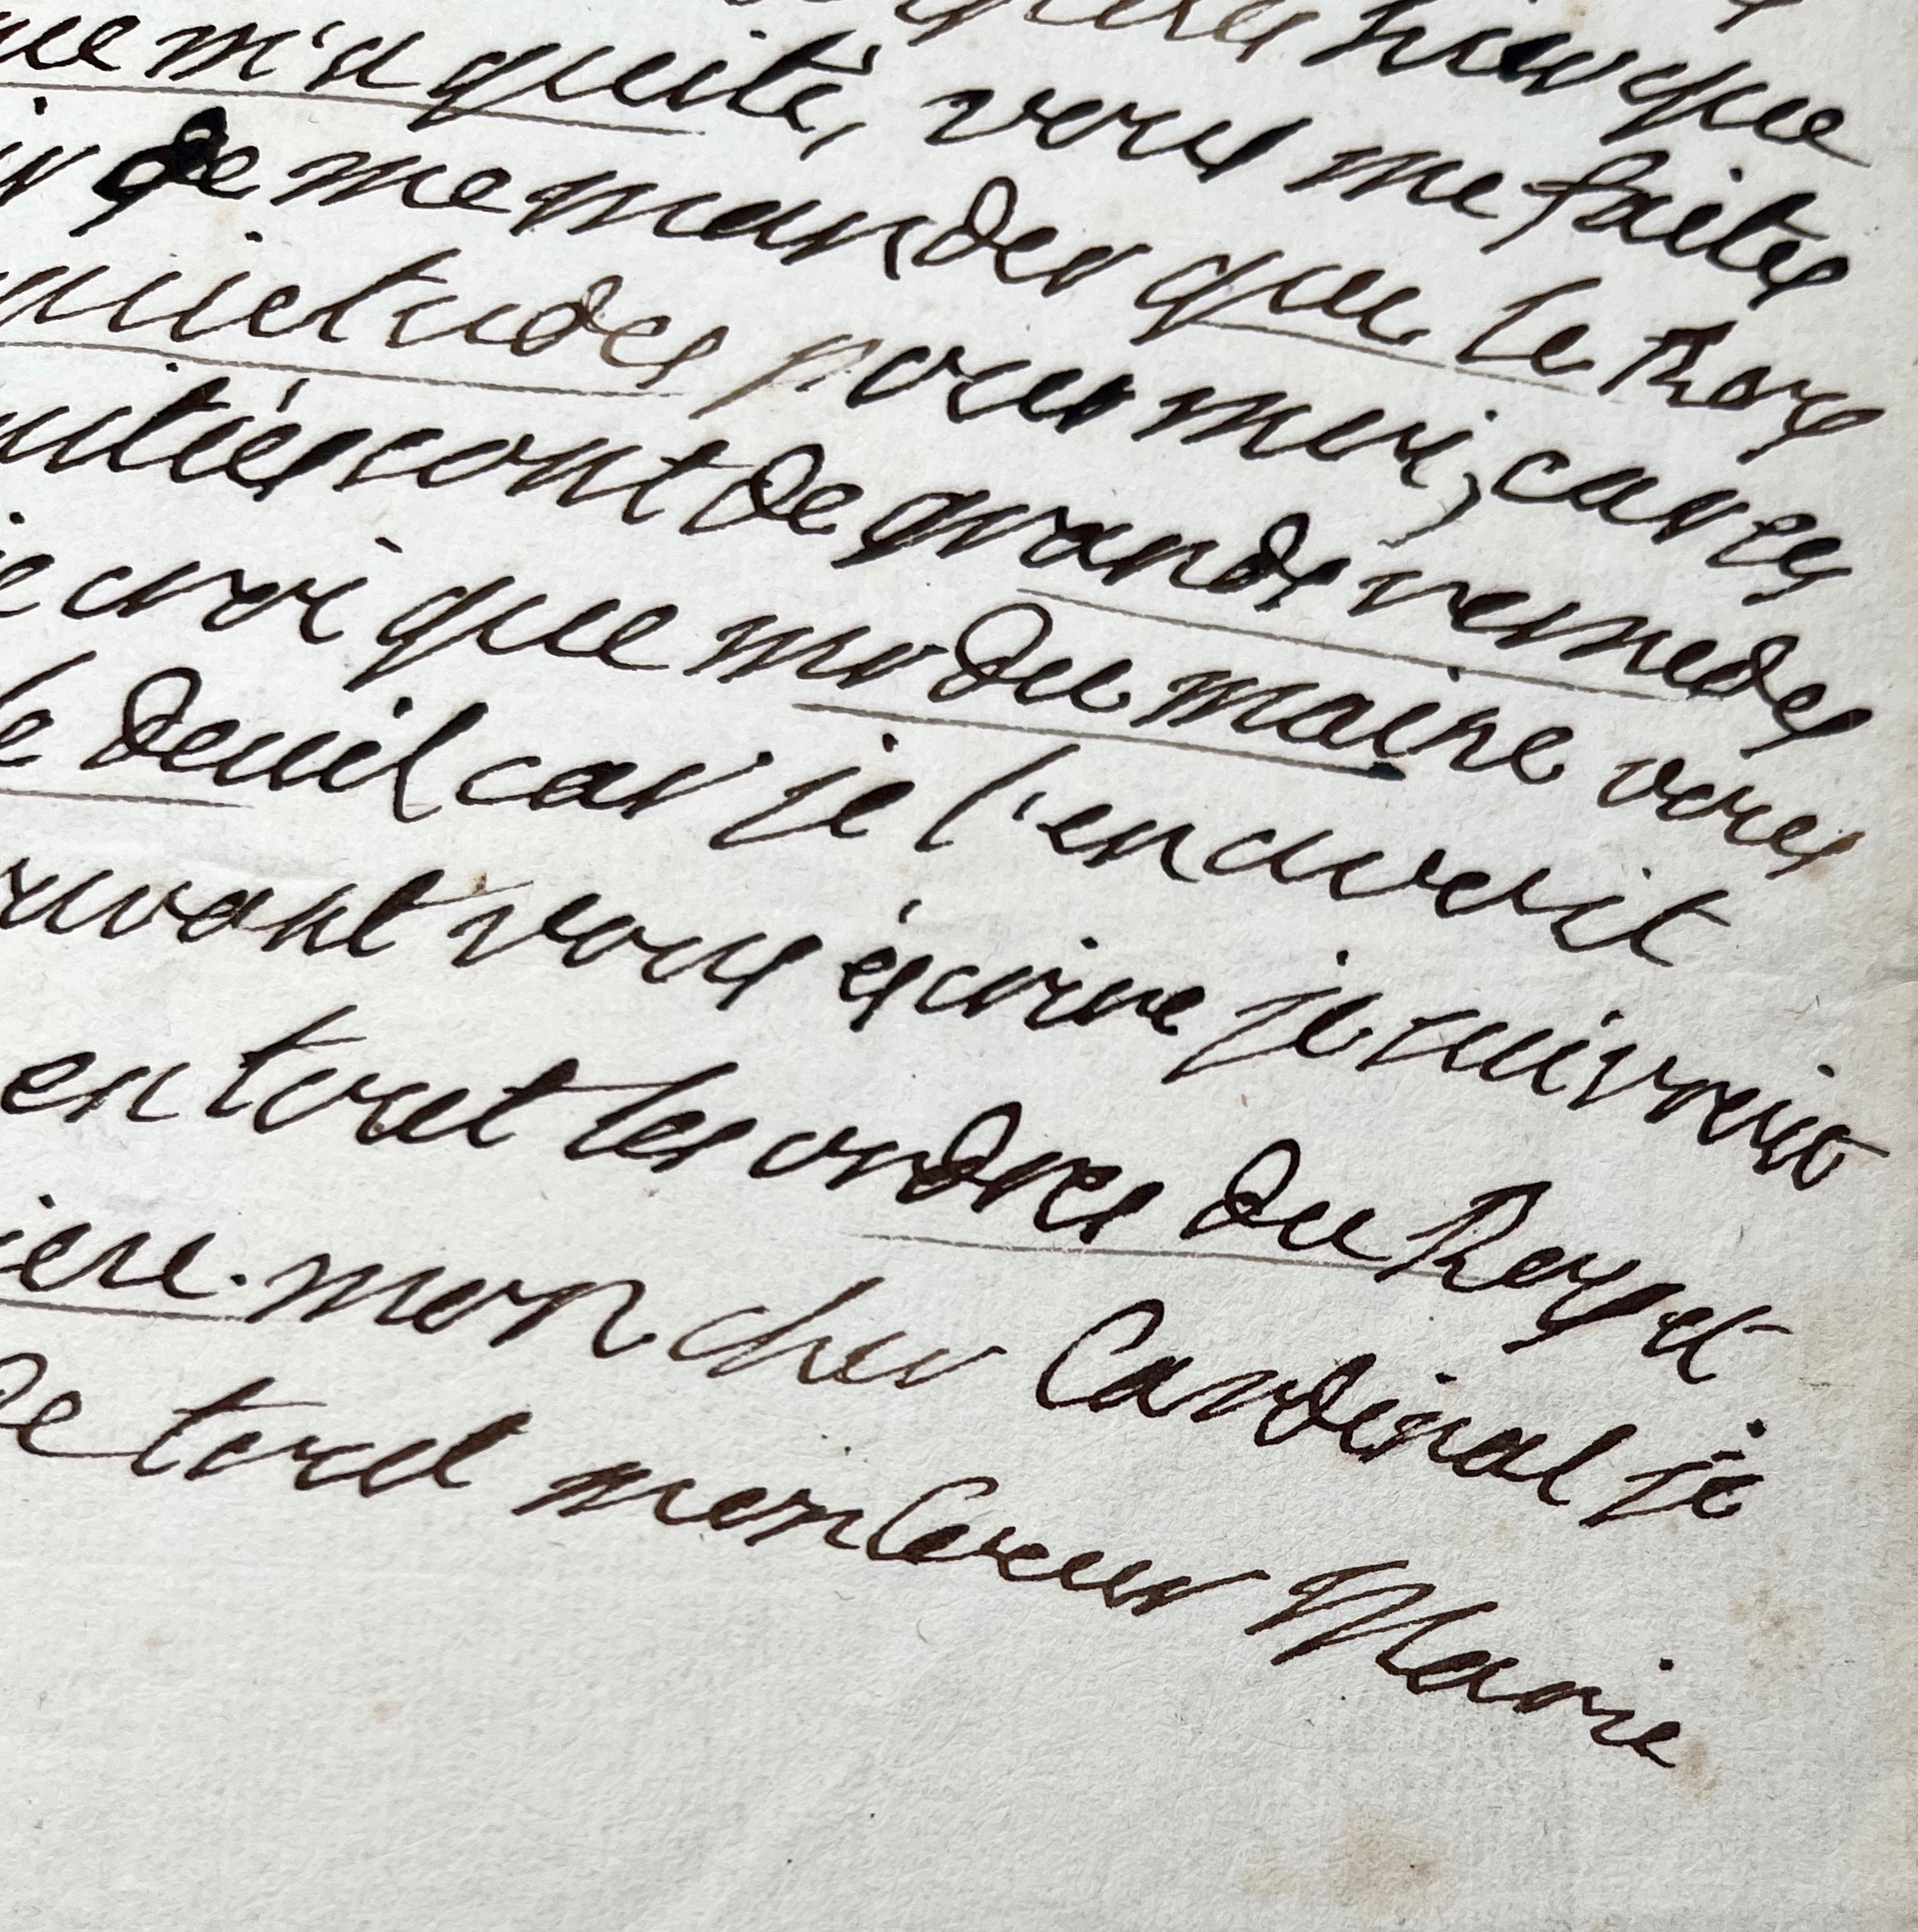 que
ue m'a quité, vous me faites
de me mander que le Roy
quietudes pour moi, car ces
uitiés sont de grands remedes
croi que mr du maine vous
le deuil car je l'en avertit
uvant vous écrire je suivrai
en tout les ordres du Roy et
iere. mon cher Cardinal je
De tout mon Coeur Marie